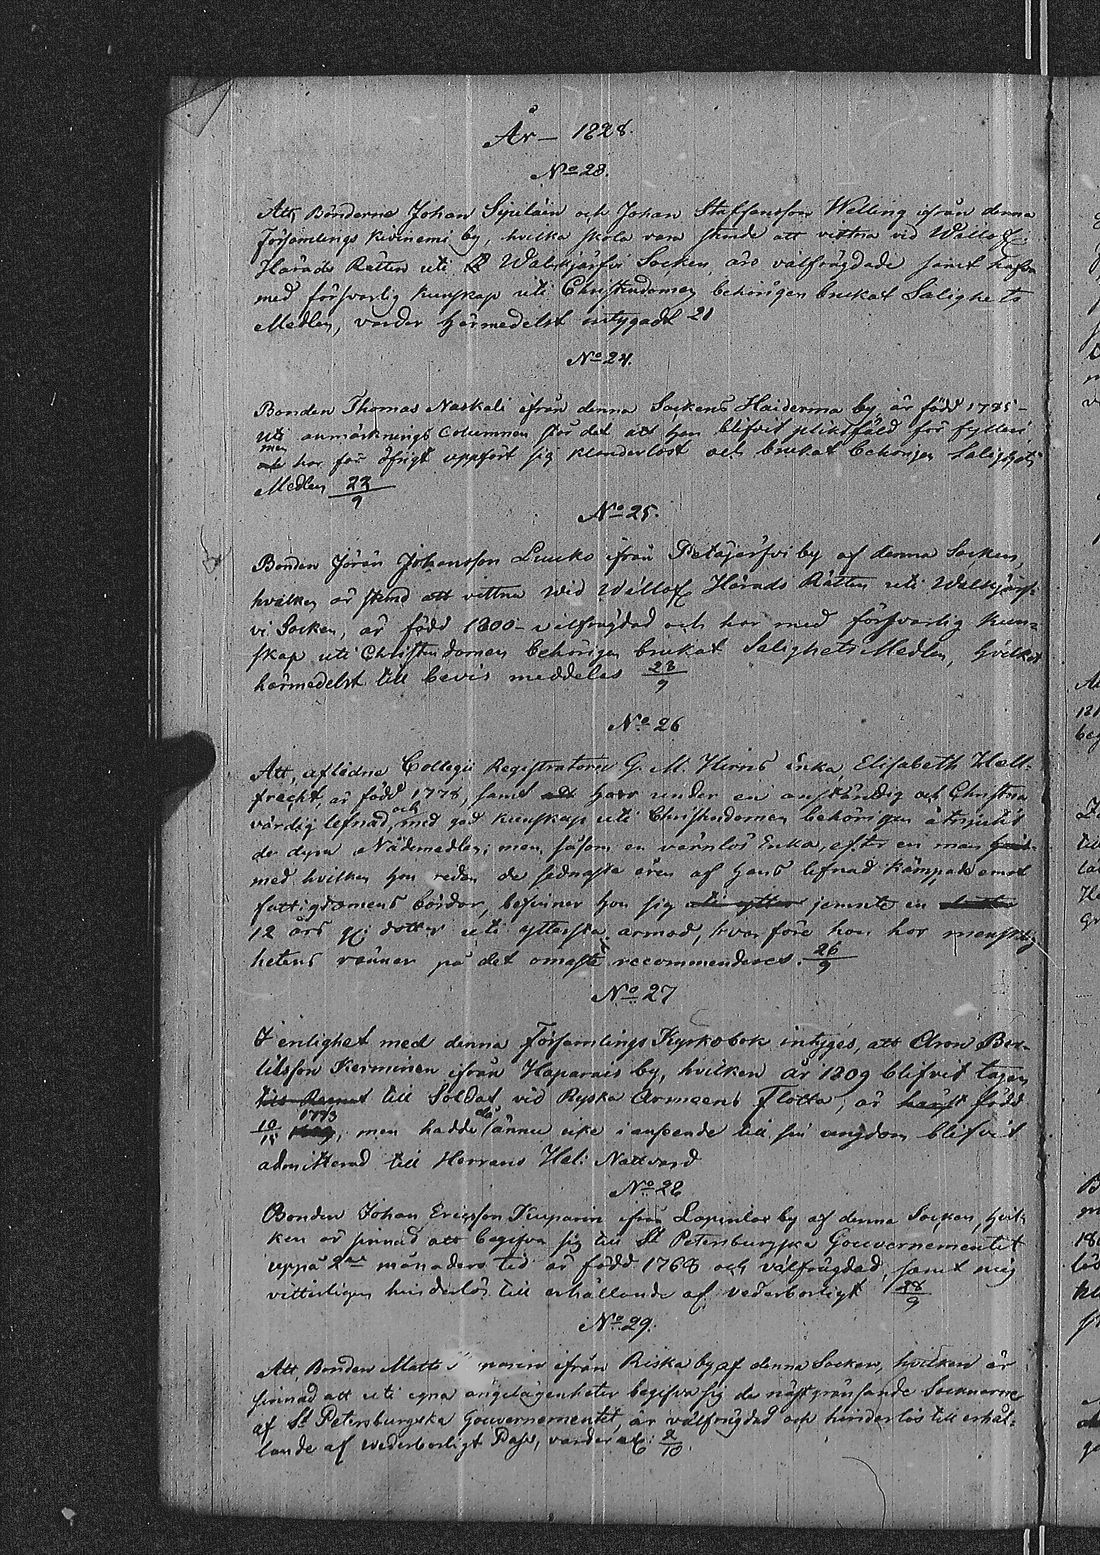 År 1828.
No 23.
Att, Bönderne Johan Sipiläin och Johan Staffansson Welling ifrån denna
Församlings Kivinemi by, hvilka skola vara stämde att vittna vid
Härads Rätten uti Walkjärfvi Socken, äro välfrägdade samt hafva
med försvarlig kunskap uti Christendomen behörigen brukat Salighets
Medlen, varder härmedelst intygadt 21
No 24.
Bonden Thomas Naskali ifrån denna Sockens by, är född 1785 –
uti anmärknings Columnen står det att han blifvit pliktfäld för fylleri,
men har för öfrigt uppfört sig klanderlöst och brukat behörigen Salighets
Medlen 22/9
No 25.
Bonden Jöran Johansson Luuko ifrån Petäjärfvi by af denna Socken,
hvilken är stämd att vittna vid Härads Rätten uti Walkjärf-
vi Socken, är född 1800 – välfrägdad och har med försvarlig kun-
skap uti Christendomen behörigen brukat Salighets Medlen, hvilket
härmedelst till bevis meddelas 23/9
No 26
Att, aflidne Collegii Registratorn G. M. Hirns Enka, Elisabeth Hell-
frecht, är född 1778, samt har under en anständig och Christen
värdig lefnad, och med god kunskap uti Christendomen behörigen åtnjutit
de dyra Nådemedlen; men, såsom en värnlös Enka, efter en man
med hvilken hon redan de sednaste åren af hans lefnad kämpade emot
fattigdomens bördor, befinner hon sig jemnte en
12 års dotter uti yttersta armod, hvarföre hon hos mensklig-
hetens vänner på det ömaste recommenderas. 26/9
No 27
I enlighet med denna Församlings Kyrkobok intyges, att Aron Ber-
tilsson Kerminen ifrån Haparais by, hvilken år 1809 blifvit tagen
till Soldat vid Ryska Armeens Flotta, är född
10/15 1773; men hade då ännu icke i anseende till sin ungdom blifvit
admitterad till Herrans Hel: Nattvard
No 28
Bonden Johan Ericsson Kuparin ifrån Lapinlax by af denna Socken, hvil-
ken är sinnad att begifva sig till St Petersburgska Gouvernementet
uppå 2ne månaders tid är född 1768 och välfrägdad, samt mig
vitterligen hinderlös till erhållande af vederbörligt 28/9
No 29.
Att, Bonden Matts ifrån Riska by af denna Socken, hvilken är
sinnad att uti egna angelägenheter begifva sig de näst gränsande Socknarne
af St Petersburgska Gouvernementet är välfrägdad och hinderlös till erhål-
lande af wederbörligt Pass, varder etc: 2/10.